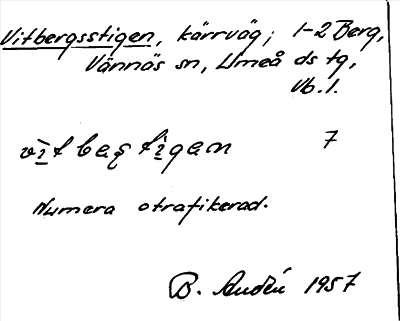 Vitbergsstigen, kärrväg; 1-2 Berg,
Vännäs sn, Umeå ds tg,
Vb. l.
vìtbeʂtìgen 7
Numera otrafikerad.
B. 1957